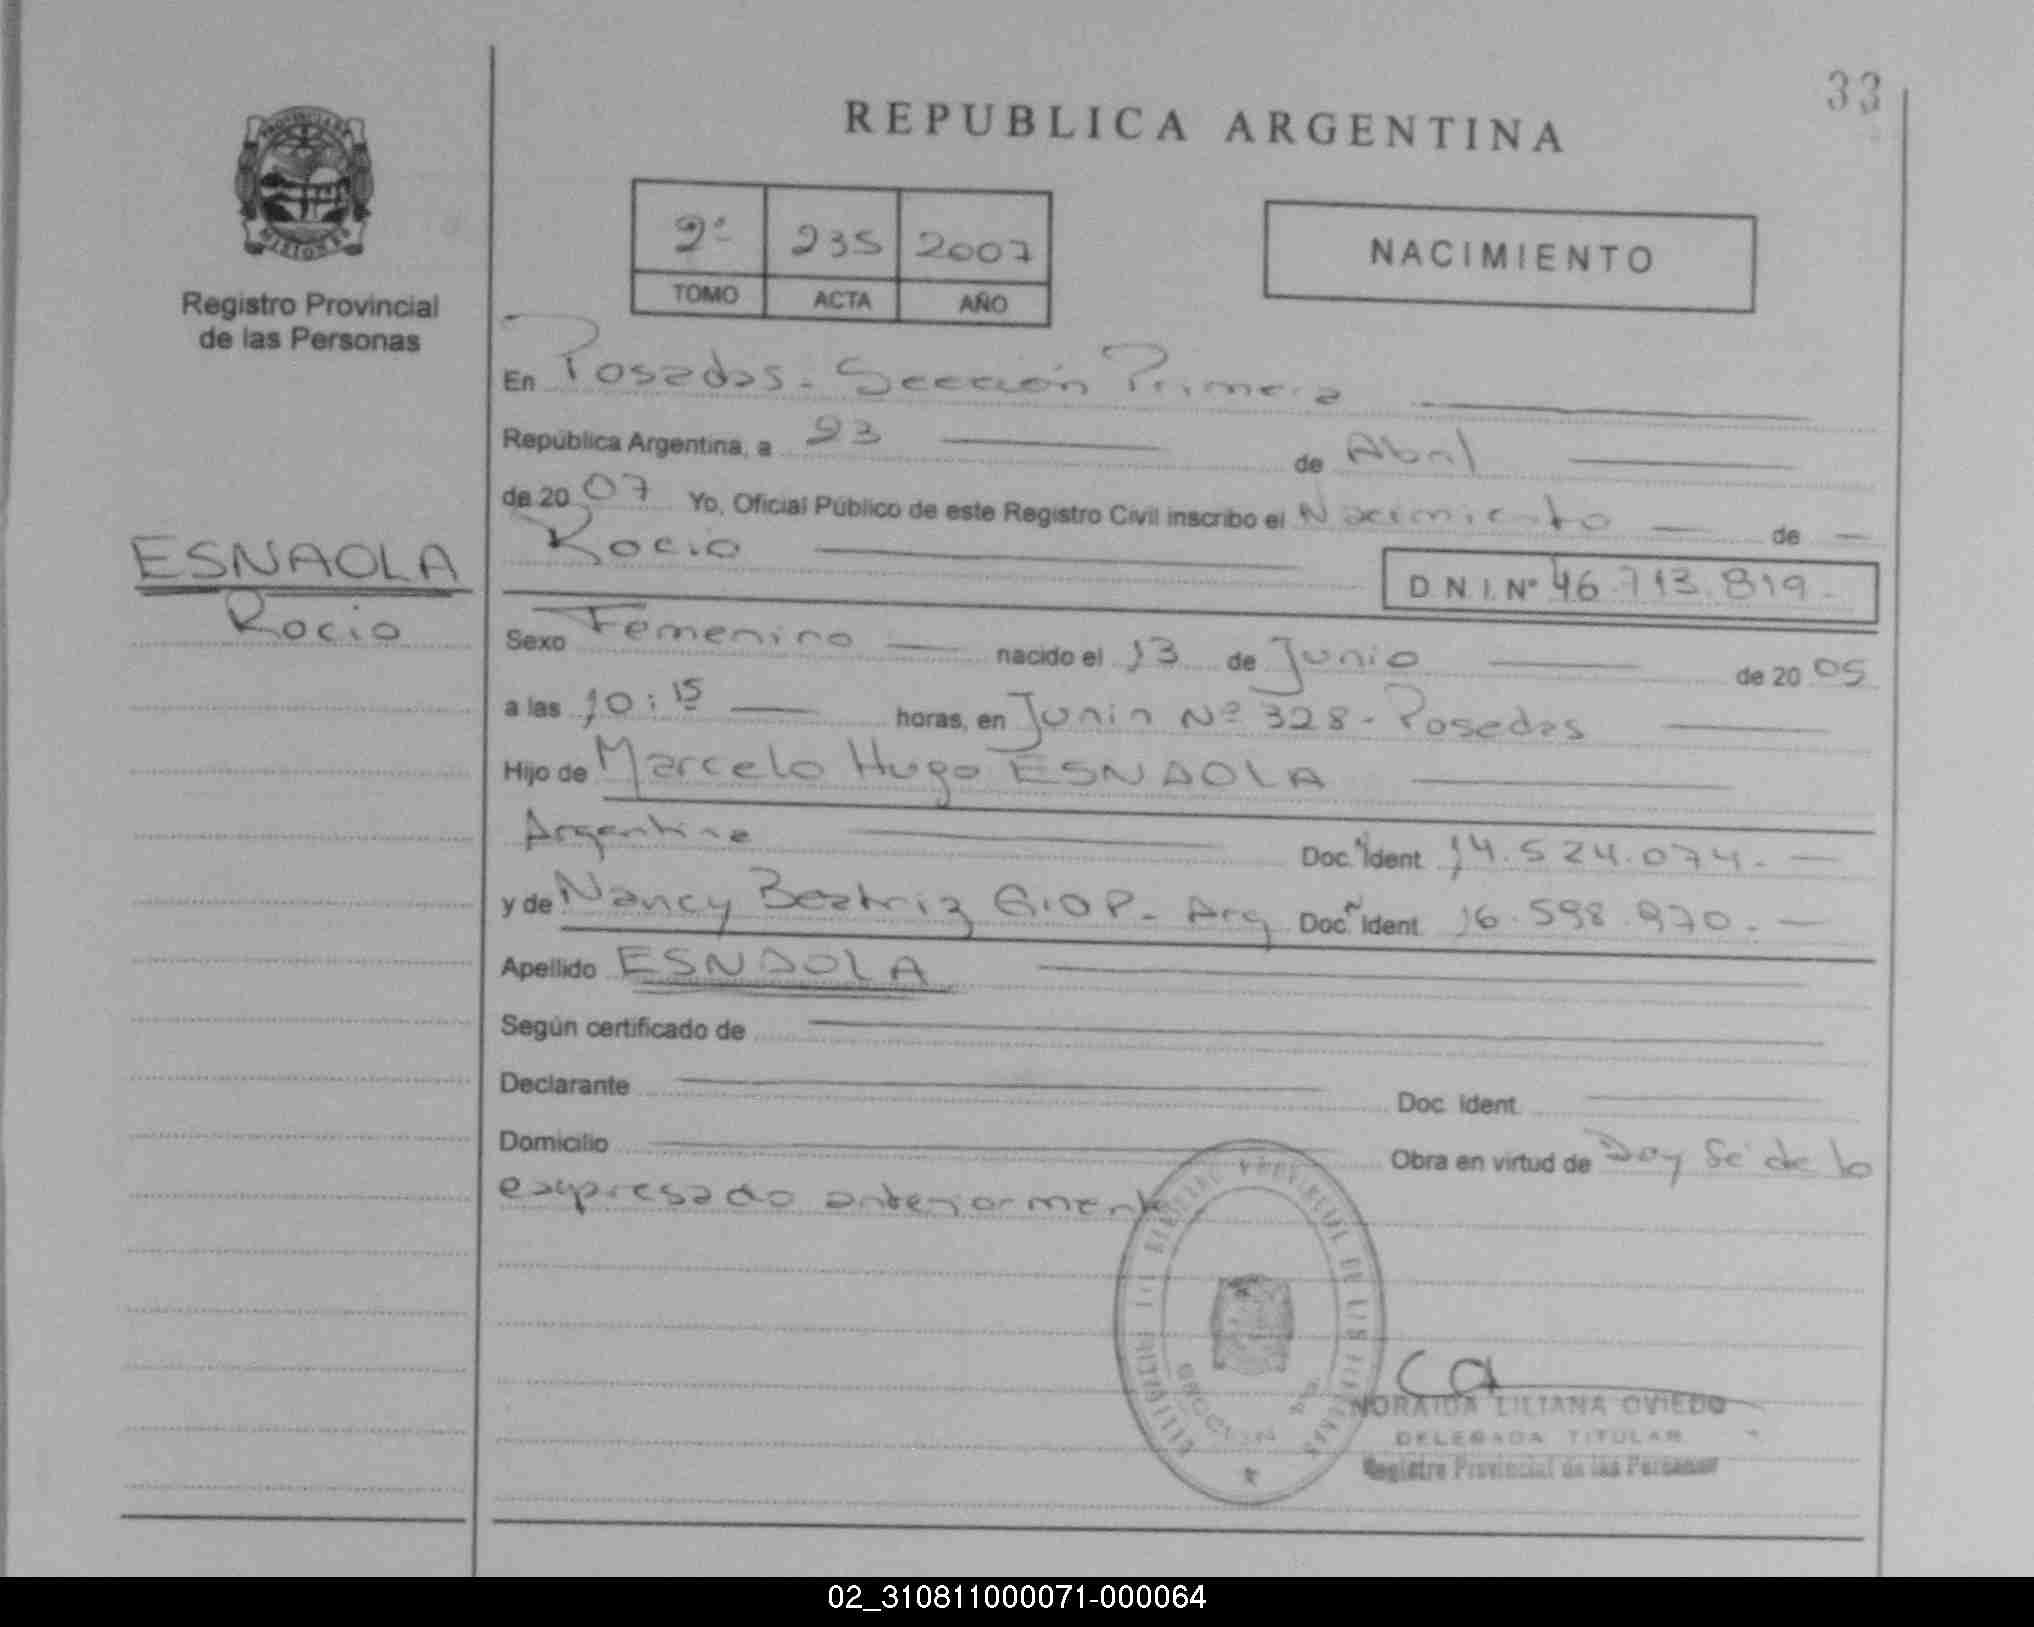 33
REPUBLICA ARGENTINA
PROVINCIA DE
MISIONES
Registro Provincial
de las Personas
2º 235 2007
TOMO ACTA AÑO
NACIMIENTO
En Posadas - Sección Primera
República Argentina, a 23 de Abril
de 2007 Yo, Oficial Público de este Registro Civil inscribo el Nacimiento de
Rocio
D.N.I.Nº 46.713.819.-
ESNAOLA
Rocio
Sexo Femenino nacido el 13 de Junio de 2005
a las 10:15 horas, en Junin Nº 328 - Posadas
Hijo de Marcelo Hugo ESNAOLA
Argentina Doc. Ident. 14.524.074.-
y de Nancy Beatriz GIOP - Arg Doc. Ident. 16.598.970.-
Apellido ESNAOLA
Según certificado de
Declarante Doc. Ident.
Domicilio Obra en virtud de Doy fé de lo
expresado anteriormente
NORAIDA LILIANA OVIEDO
DELEGADA TITULAR
Registro Provincial de las Personas
02_310811000071-000064